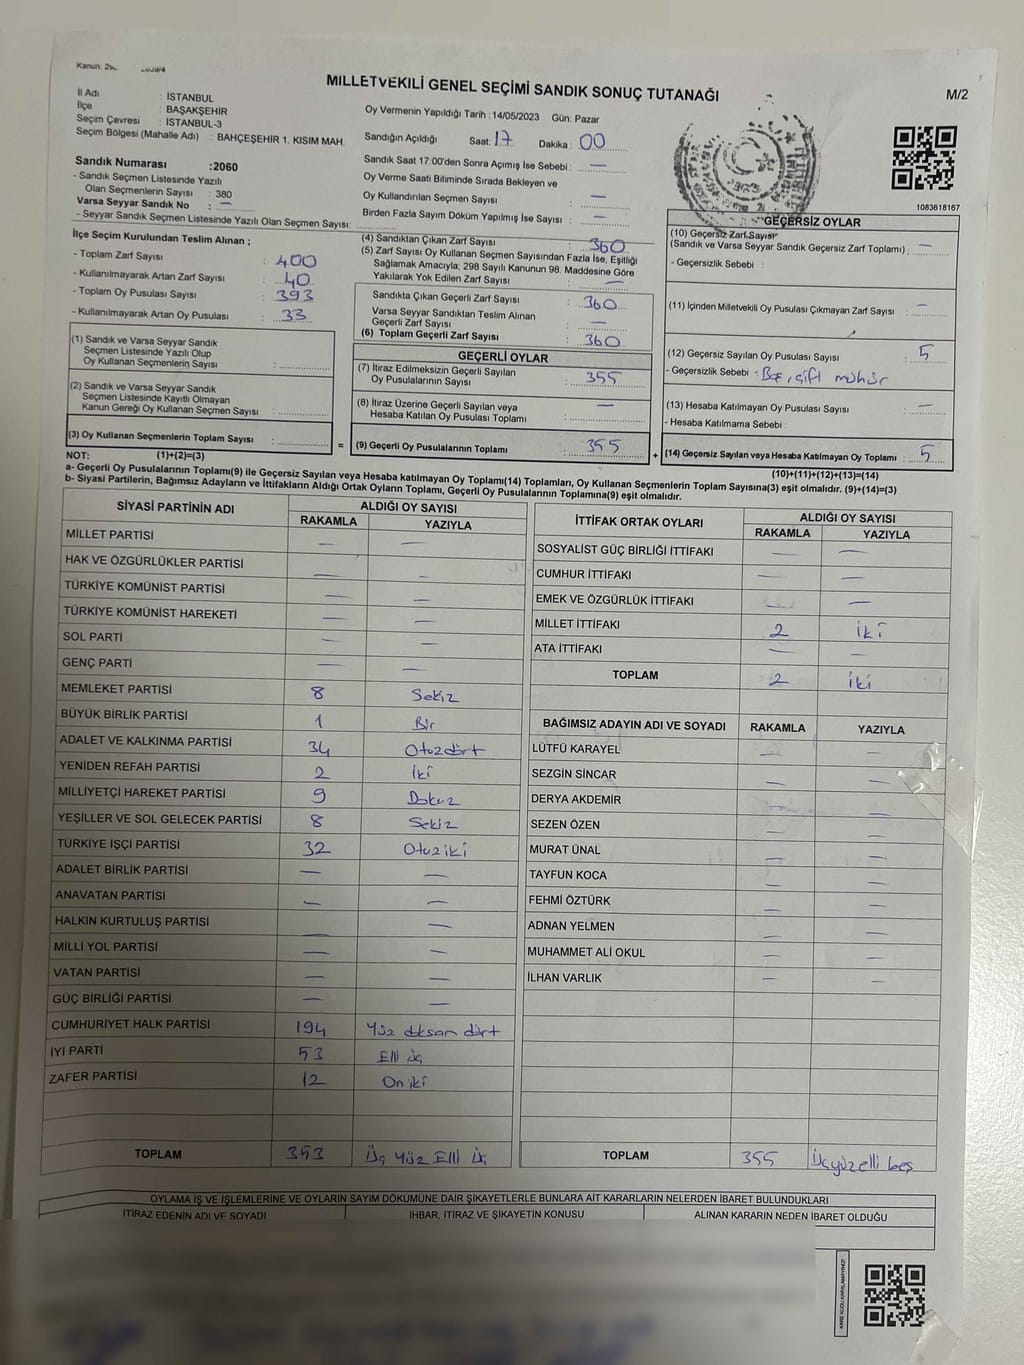 Kanun: 29
MİLLETVEKİLİ GENEL SEÇİMİ SANDIK SONUÇ TUTANAĞI
M/2
İl Adı : İSTANBUL
İlçe : BAŞAKŞEHİR
Seçim Çevresi : İSTANBUL-3
Seçim Bölgesi (Mahalle Adı) : BAHÇEŞEHİR 1. KISIM MAH.
Sandık Numarası :2060
- Sandık Seçmen Listesinde Yazılı
Olan Seçmenlerin Sayısı : 380
Varsa Seyyar Sandık No : —
- Seyyar Sandık Seçmen Listesinde Yazılı Olan Seçmen Sayısı:
İlçe Seçim Kurulundan Teslim Alınan ;
- Toplam Zarf Sayısı : 400
- Kullanılmayarak Artan Zarf Sayısı : 40
- Toplam Oy Pusulası Sayısı : 393
- Kullanılmayarak Artan Oy Pusulası : 33
(1) Sandık ve Varsa Seyyar Sandık
Seçmen Listesinde Yazılı Olup
Oy Kullanan Seçmenlerin Sayısı :
(2) Sandık ve Varsa Seyyar Sandık
Seçmen Listesinde Kayıtlı Olmayan
Kanun Gereği Oy Kullanan Seçmen Sayısı :
(3) Oy Kullanan Seçmenlerin Toplam Sayısı :
Oy Vermenin Yapıldığı Tarih : 14/05/2023 Gün: Pazar
Sandığın Açıldığı Saat: 17 Dakika: 00
Sandık Saat 17:00'den Sonra Açımış İse Sebebi : —
Oy Verme Saati Bitiminde Sırada Bekleyen ve
Oy Kullandırılan Seçmen Sayısı : —
Birden Fazla Sayım Döküm Yapılmış İse Sayısı : —
(4) Sandıktan Çıkan Zarf Sayısı : 360
(5) Zarf Sayısı Oy Kullanan Seçmen Sayısından Fazla İse, Eşitliği
Sağlamak Amacıyla; 298 Sayılı Kanunun 98. Maddesine Göre
Yakılarak Yok Edilen Zarf Sayısı : —
Sandıkta Çıkan Geçerli Zarf Sayısı : 360
Varsa Seyyar Sandıktan Teslim Alınan
Geçerli Zarf Sayısı : —
(6) Toplam Geçerli Zarf Sayısı : 360
GEÇERLİ OYLAR
(7) İtiraz Edilmeksizin Geçerli Sayılan
Oy Pusulalarının Sayısı : 355
(8) İtiraz Üzerine Geçerli Sayılan veya
Hesaba Katılan Oy Pusulası Toplamı : —
= (9) Geçerli Oy Pusulalarının Toplamı : 355
1083618167
GEÇERSİZ OYLAR
(10) Geçersiz Zarf Sayısı
(Sandık ve Varsa Seyyar Sandık Geçersiz Zarf Toplamı) : —
- Geçersizlik Sebebi :
(11) İçinden Milletvekili Oy Pusulası Çıkmayan Zarf Sayısı : —
(12) Geçersiz Sayılan Oy Pusulası Sayısı : 5
- Geçersizlik Sebebi : Boş, çift mühür
(13) Hesaba Katılmayan Oy Pusulası Sayısı : —
- Hesaba Katılmama Sebebi :
+ (14) Geçersiz Sayılan veya Hesaba Katılmayan Oy Toplamı : 5
NOT: (1)+(2)=(3) (10)+(11)+(12)+(13)=(14)
a- Geçerli Oy Pusulalarının Toplamı(9) ile Geçersiz Sayılan veya Hesaba katılmayan Oy Toplamı(14) Toplamları, Oy Kullanan Seçmenlerin Toplam Sayısına(3) eşit olmalıdır. (9)+(14)=(3)
b- Siyasi Partilerin, Bağımsız Adayların ve İttifakların Aldığı Ortak Oyların Toplamı, Geçerli Oy Pusulalarının Toplamına(9) eşit olmalıdır.
SİYASİ PARTİNİN ADI ALDIĞI OY SAYISI
RAKAMLA YAZIYLA
MİLLET PARTİSİ — —
HAK VE ÖZGÜRLÜKLER PARTİSİ — —
TÜRKİYE KOMÜNİST PARTİSİ — —
TÜRKİYE KOMÜNİST HAREKETİ — —
SOL PARTİ — —
GENÇ PARTİ — —
MEMLEKET PARTİSİ 8 Sekiz
BÜYÜK BİRLİK PARTİSİ 1 Bir
ADALET VE KALKINMA PARTİSİ 34 Otuzdört
YENİDEN REFAH PARTİSİ 2 İki
MİLLİYETÇİ HAREKET PARTİSİ 9 Dokuz
YEŞİLLER VE SOL GELECEK PARTİSİ 8 Sekiz
TÜRKİYE İŞÇİ PARTİSİ 32 Otuziki
ADALET BİRLİK PARTİSİ — —
ANAVATAN PARTİSİ — —
HALKIN KURTULUŞ PARTİSİ — —
MİLLİ YOL PARTİSİ — —
VATAN PARTİSİ — —
GÜÇ BİRLİĞİ PARTİSİ — —
CUMHURİYET HALK PARTİSİ 194 Yüz doksan dört
İYİ PARTİ 53 Elli üç
ZAFER PARTİSİ 12 Oniki
TOPLAM 353 Üç Yüz Elli Üç
İTTİFAK ORTAK OYLARI ALDIĞI OY SAYISI
RAKAMLA YAZIYLA
SOSYALİST GÜÇ BİRLİĞİ İTTİFAKI — —
CUMHUR İTTİFAKI — —
EMEK VE ÖZGÜRLÜK İTTİFAKI — —
MİLLET İTTİFAKI 2 İki
ATA İTTİFAKI — —
TOPLAM 2 İki
BAĞIMSIZ ADAYIN ADI VE SOYADI RAKAMLA YAZIYLA
LÜTFÜ KARAYEL — —
SEZGİN SİNCAR — —
DERYA AKDEMİR — —
SEZEN ÖZEN — —
MURAT ÜNAL — —
TAYFUN KOCA — —
FEHMİ ÖZTÜRK — —
ADNAN YELMEN — —
MUHAMMET ALİ OKUL — —
İLHAN VARLIK — —
TOPLAM 355 Üçyüzelli beş
OYLAMA İŞ VE İŞLEMLERİNE VE OYLARIN SAYIM DÖKÜMÜNE DAİR ŞİKAYETLERLE BUNLARA AİT KARARLARIN NELERDEN İBARET BULUNDUKLARI
İTİRAZ EDENİN ADI VE SOYADI İHBAR, İTİRAZ VE ŞİKAYETİN KONUSU ALINAN KARARIN NEDEN İBARET OLDUĞU